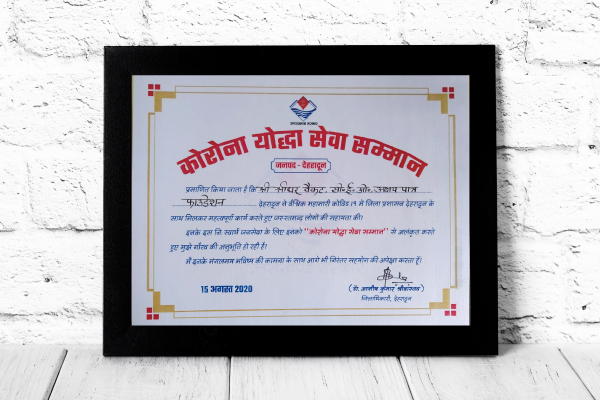 कोरोना योद्धा सेवा सम्मान
जनपद - देहरादून
प्रमाणित किया जाता है कि श्री श्रीधर वेंकट, सी.ई.ओ. अक्षय पात्र
फाउंडेशन देहरादून ने वैश्विक महामारी कोविड १९ में जिला प्रशासन देहरादून के
साथ मिलकर महत्वपूर्ण कार्य करते हुए जरूरतमन्द लोगों की सहायता की।
इनके इस नि स्वार्थ जनसेवा के लिए इनको "कोरोना योद्धा सेवा सम्मान" से अलंकृत करते
हुए मुझे गौरव की अनुभूति हो रही है।
मैं इनके मंगलमय भविष्य की कामना के साथ आगे भी निरंतर सहयोग की अपेक्षा करता हूँ।
15 अगस्त 2020
(डॉ. आशीष कुमार श्रीवास्तव)
जिलाधिकारी, देहरादून